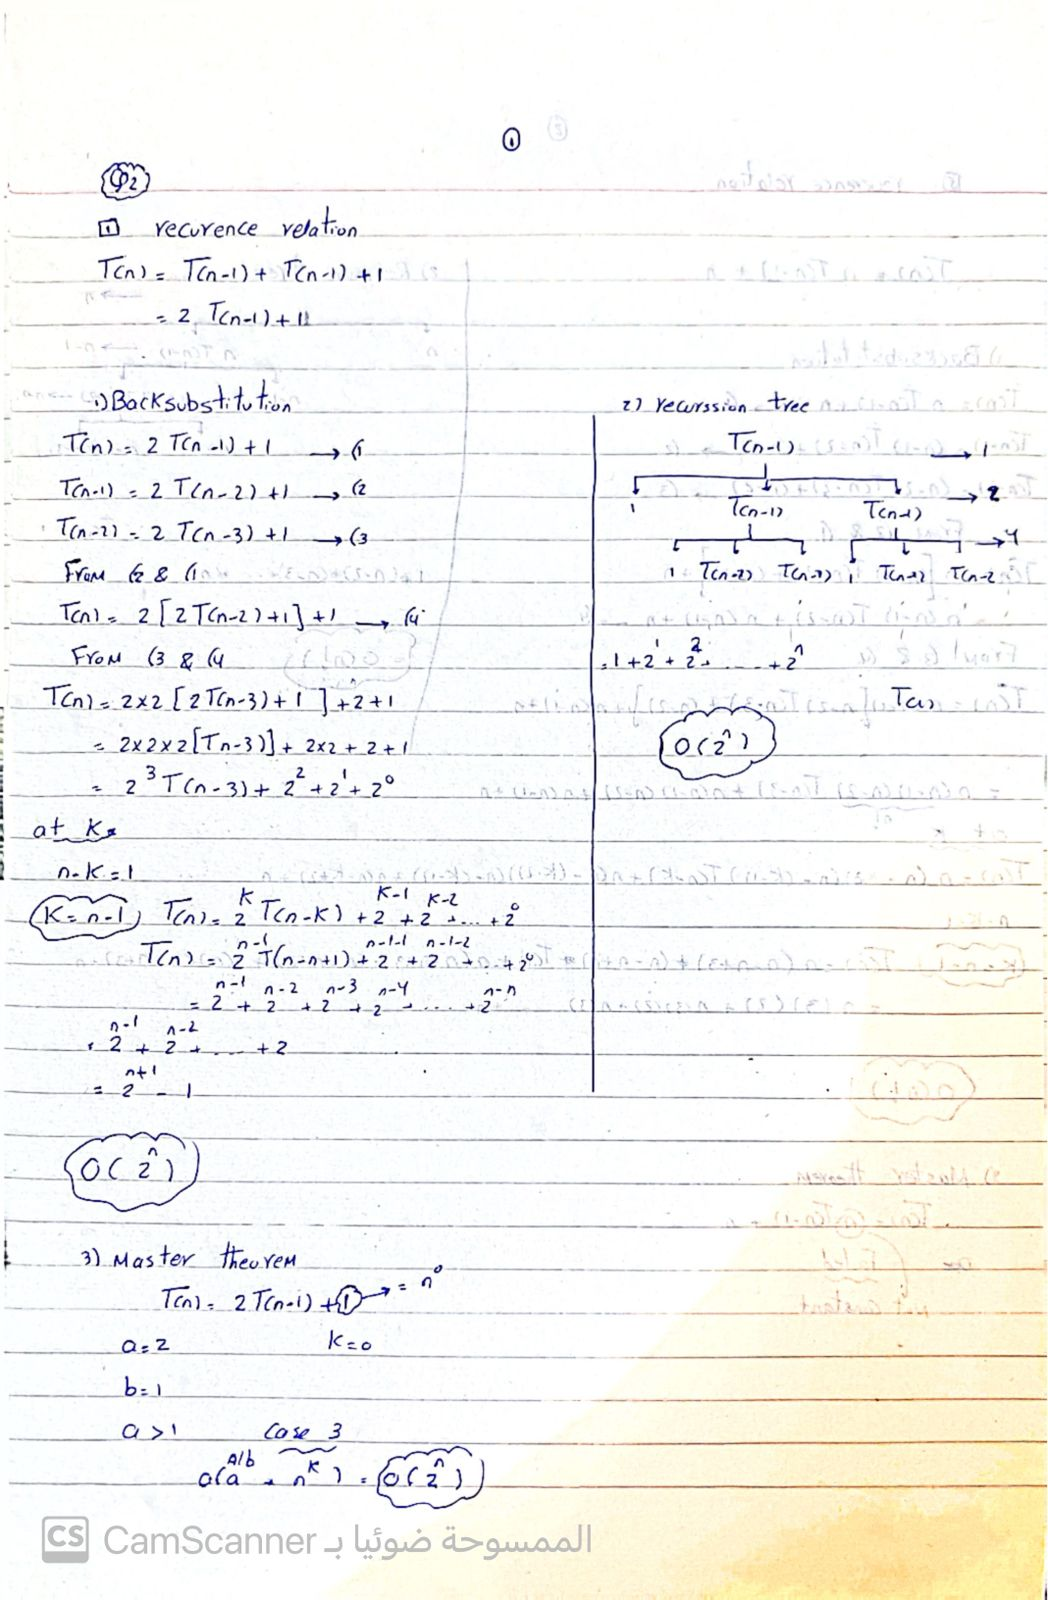 ①
Q2
1 recurence relation
T(n) = T(n-1) + T(n-1) + 1
= 2 T(n-1) + 1
1) Backsubstitution
T(n) = 2 T(n-1) + 1 → (1
T(n-1) = 2 T(n-2) + 1 → (2
T(n-2) = 2 T(n-3) + 1 → (3
From (2 & (1
T(n) = 2 [2T(n-2) + 1] + 1 → (4
From (3 & (4
T(n) = 2x2 [2T(n-3) + 1] + 2 + 1
= 2x2x2 [Tn-3)] + 2x2 + 2 + 1
= 2^3 T(n-3) + 2^2 + 2^1 + 2^0
at K
n-K=1
K=n-1) T(n) = 2^K T(n-K) + 2^K-1 + 2^K-2 + .... + 2^0
T(n) = 2^n-1 T(n-n+1) + 2^n-1-1 + 2^n-1-2 + .. + 2^0
= 2^n-1 + 2^n-2 + 2^n-3 + 2^n-4 + .... + 2^n-n
= 2^n-1 + 2^n-2 + .... + 2
= 2^n+1 - 1
O(2^n)
2) recurssion tree
T(n-1) → 1
→ 2
1 T(n-1) T(n-1)
→ 4
1 T(n-2) T(n-2) 1 T(n-2) T(n-2
= 1 + 2^1 + 2^2 + ..... + 2^n
T(1)
O(2^n)
3) Master theorem
T(n) = 2T(n-1) + 1 → = n^0
a=2 K=0
b=1
a>1 Case 3
O(a^n/b * n^K) = O(2^n)
CS CamScanner الممسوحة ضوئيا بـ